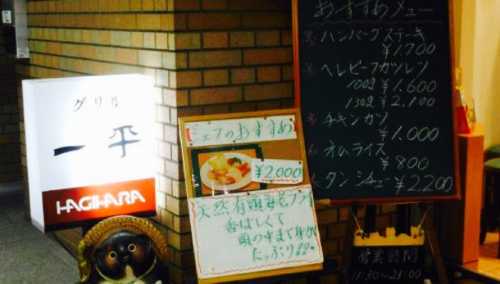 グリル
一平
HAGIHARA
シェフのおすすめ
¥2,000
天然有頭海老フライ
香ばしくて
頭の中まで
たっぷり
おすすめメニュー
ハンバーグステーキ
¥1,700
ヘレビーフカツレツ
100g ¥1,600
130g ¥2,100
チキンカツ
¥1,000
オムライス
¥800
タンシチュー ¥2,200
営業時間
11:30~21:00